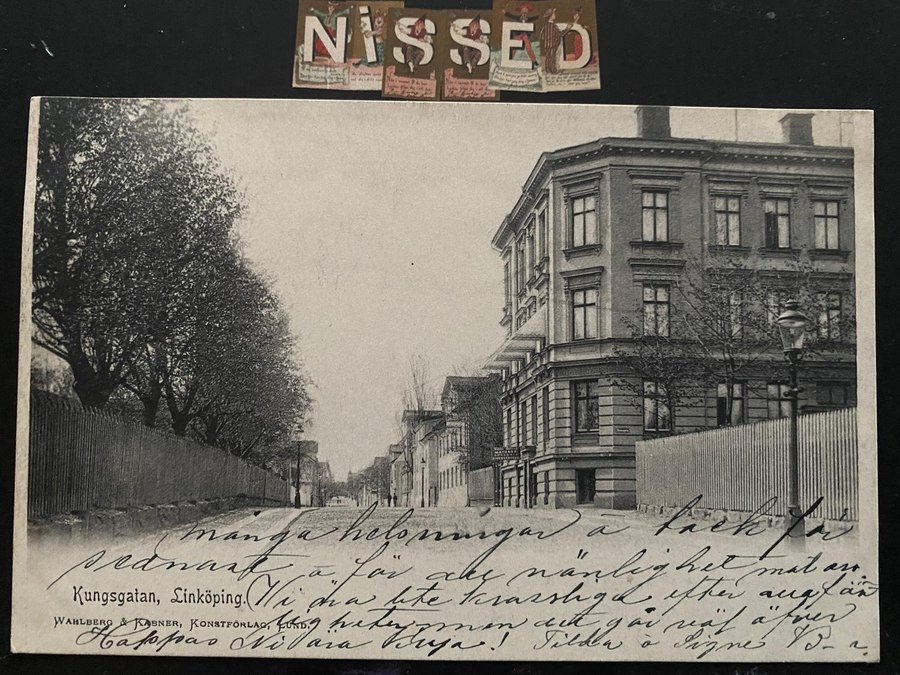 NiSSED
många helsningar o tack för
sednast o för all vänlighet mot oss
Kungsgatan, Linköping. Vi må lite krassliga efter ang
WAHLBERG & KABNER, KONSTFÖRLAG, LUND. men det går väl öfver
Hoppas Ni ära krya! Tilda o Signe B-r.